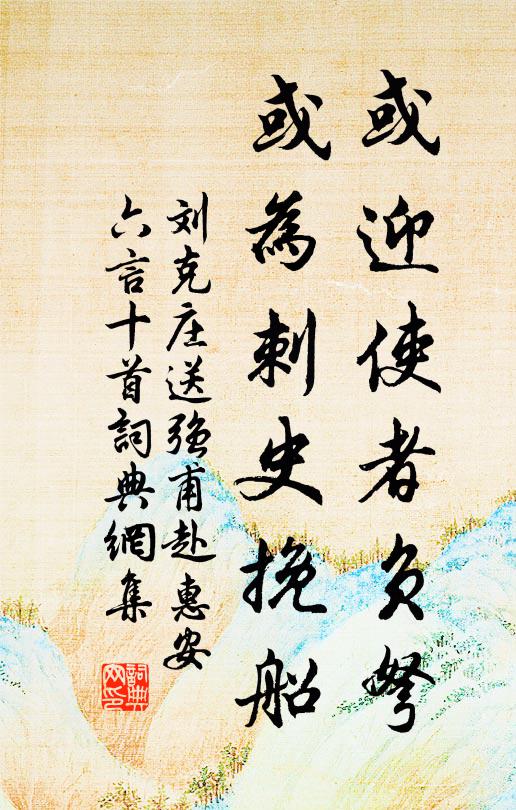 或迎使者负弩
或為刺史挽船
刘克庄送强甫赴惠安
六言十首詞典網集
詞典
网印